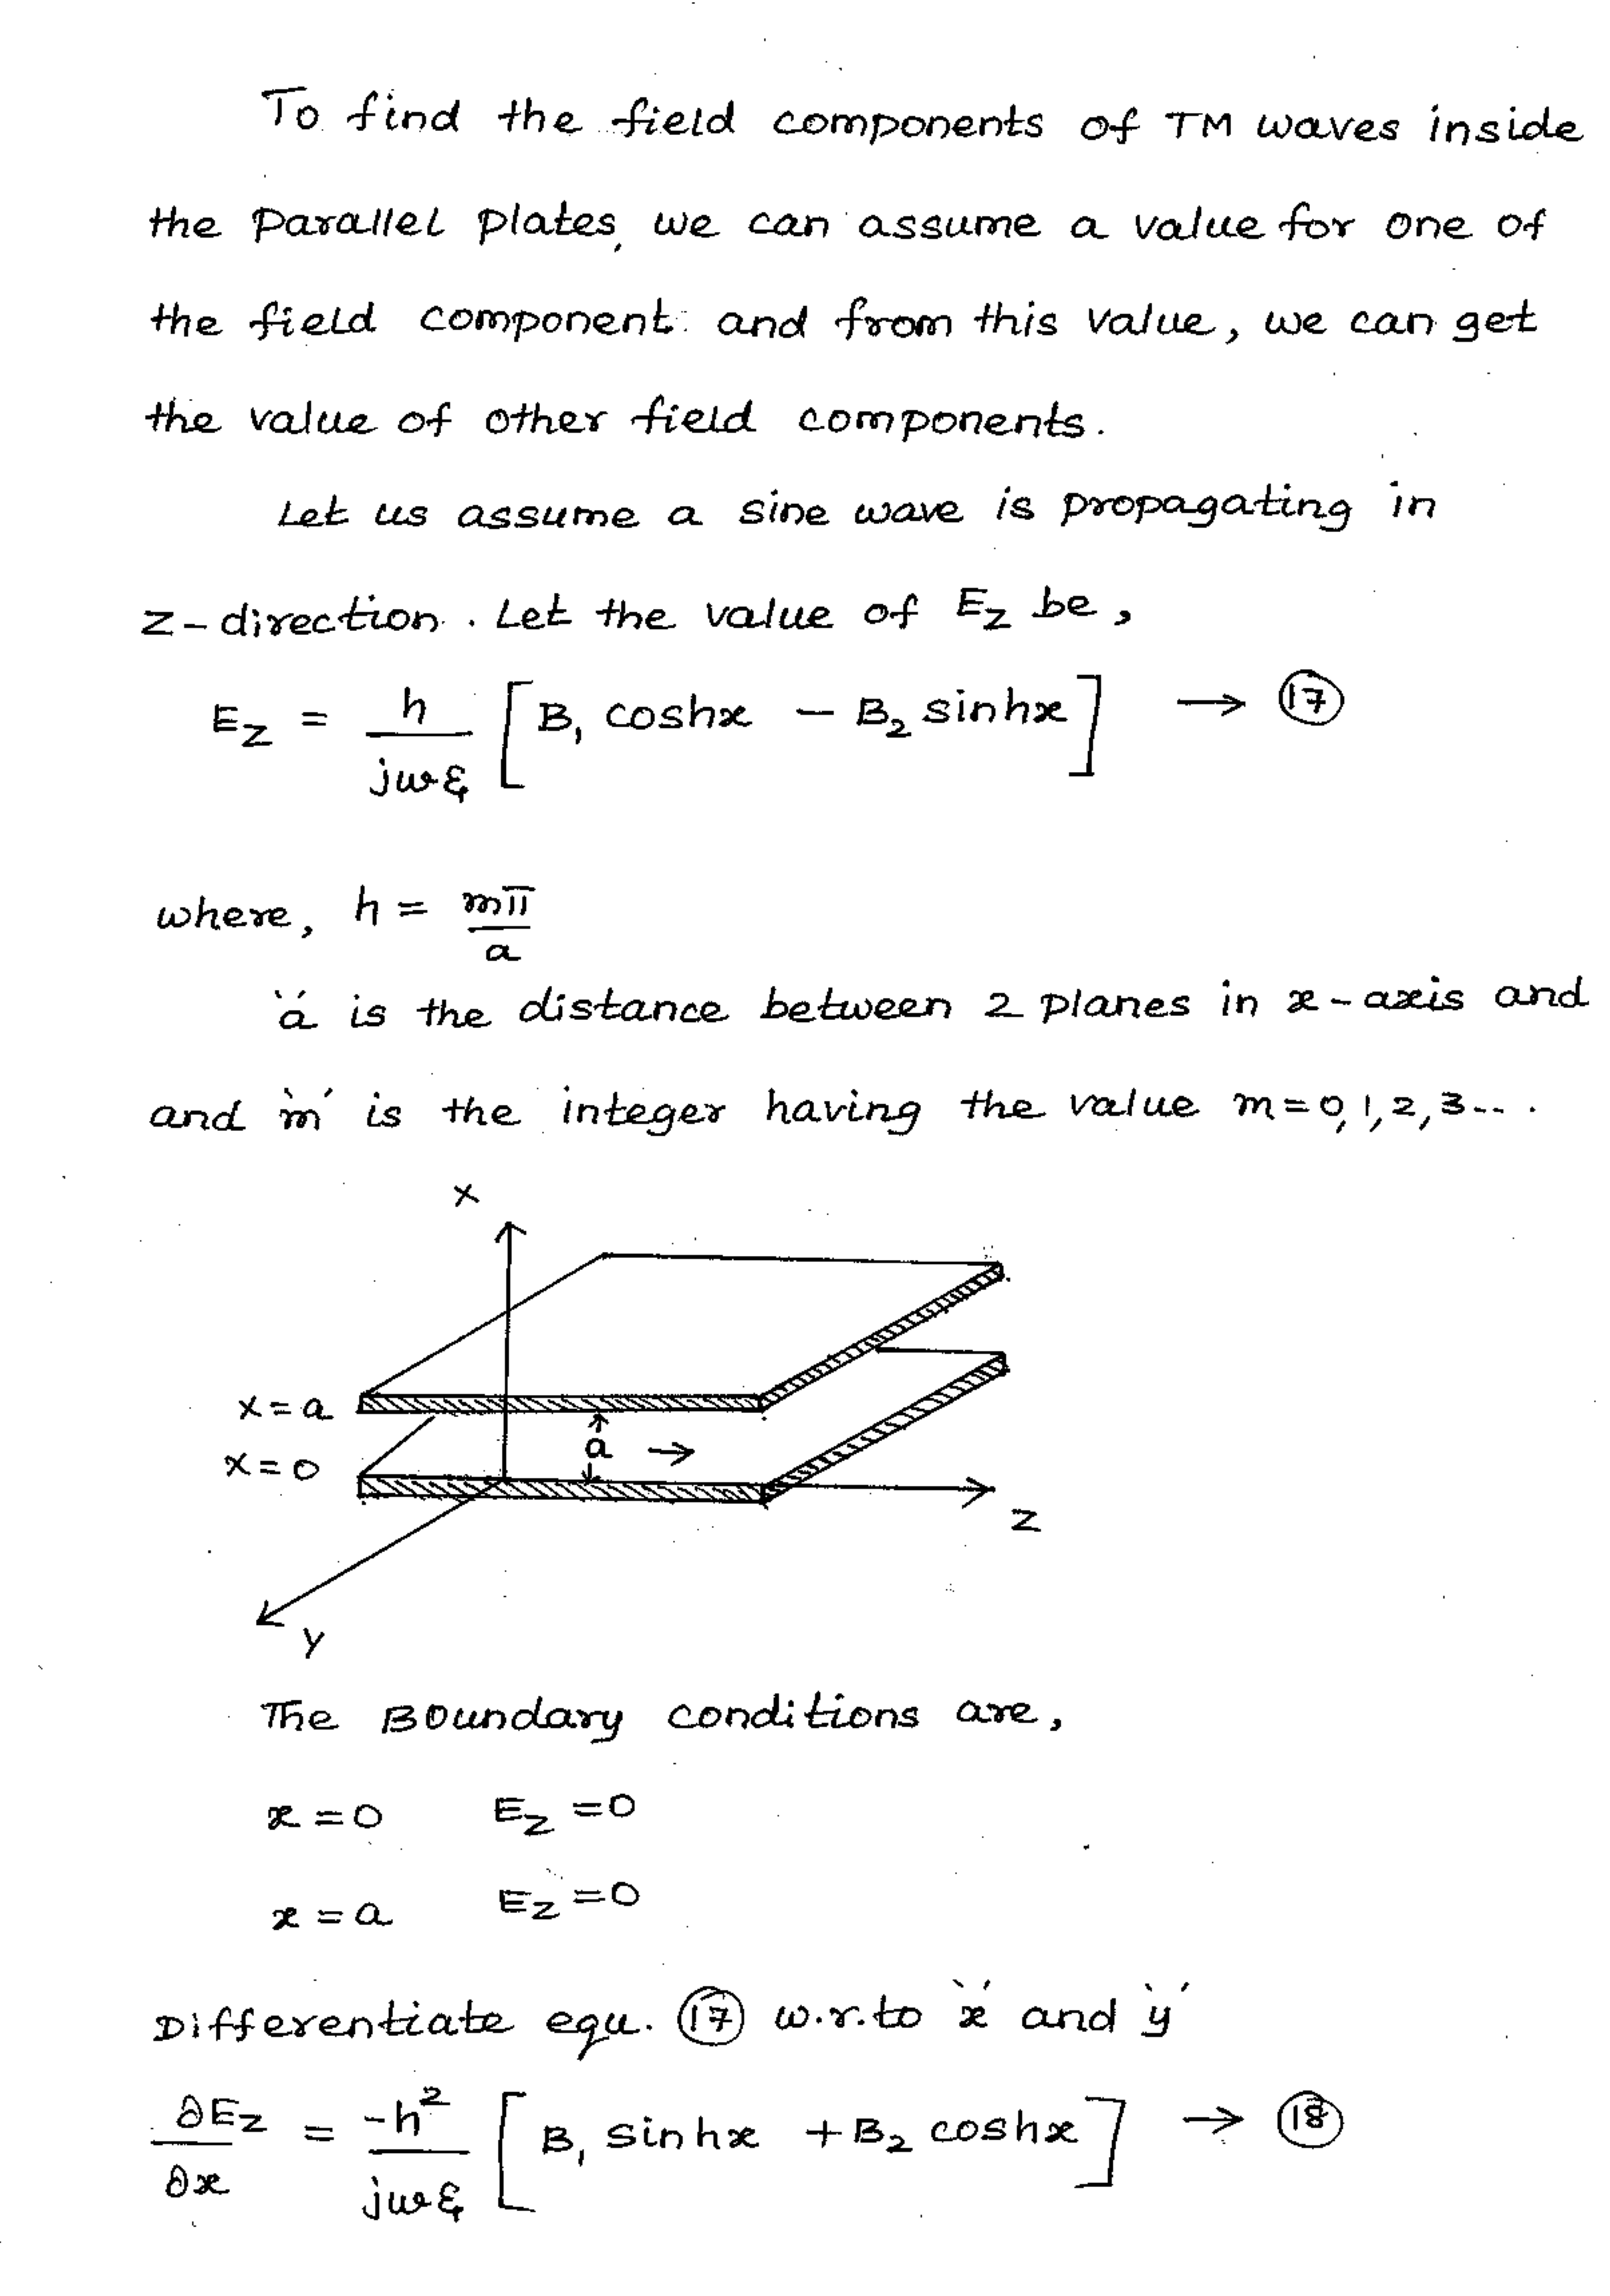 To find the field components of TM waves inside
the Parallel plates, we can assume a value for one of
the field component and from this value, we can get
the value of other field components.
Let us assume a sine wave is propagating in
z-direction. Let the value of Ez be,
Ez = h/jωε [B₁ coshx − B₂ sinhx] → (17)
where, h = mπ/a
'a' is the distance between 2 planes in x-axis and
and 'm' is the integer having the value m=0,1,2,3...
X
x=a
a →
x=0
Z
y
The Boundary conditions are,
x=0 Ez=0
x=a Ez=0
Differentiate equ. (17) w.r.to 'x' and 'y'
∂Ez/∂x = -h²/jωε [B₁ sinhx + B₂ coshx] → (18)